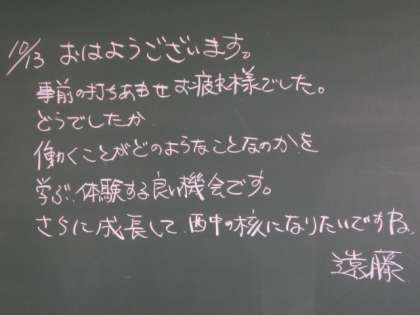 10/13 おはようございます。
事前の打ちあわせお疲れ様でした。
どうでしたか
働くことがどのようなことなのかを
学ぶ、体験する良い機会です。
さらに成長して、西中の核になりたいですね。
遠藤